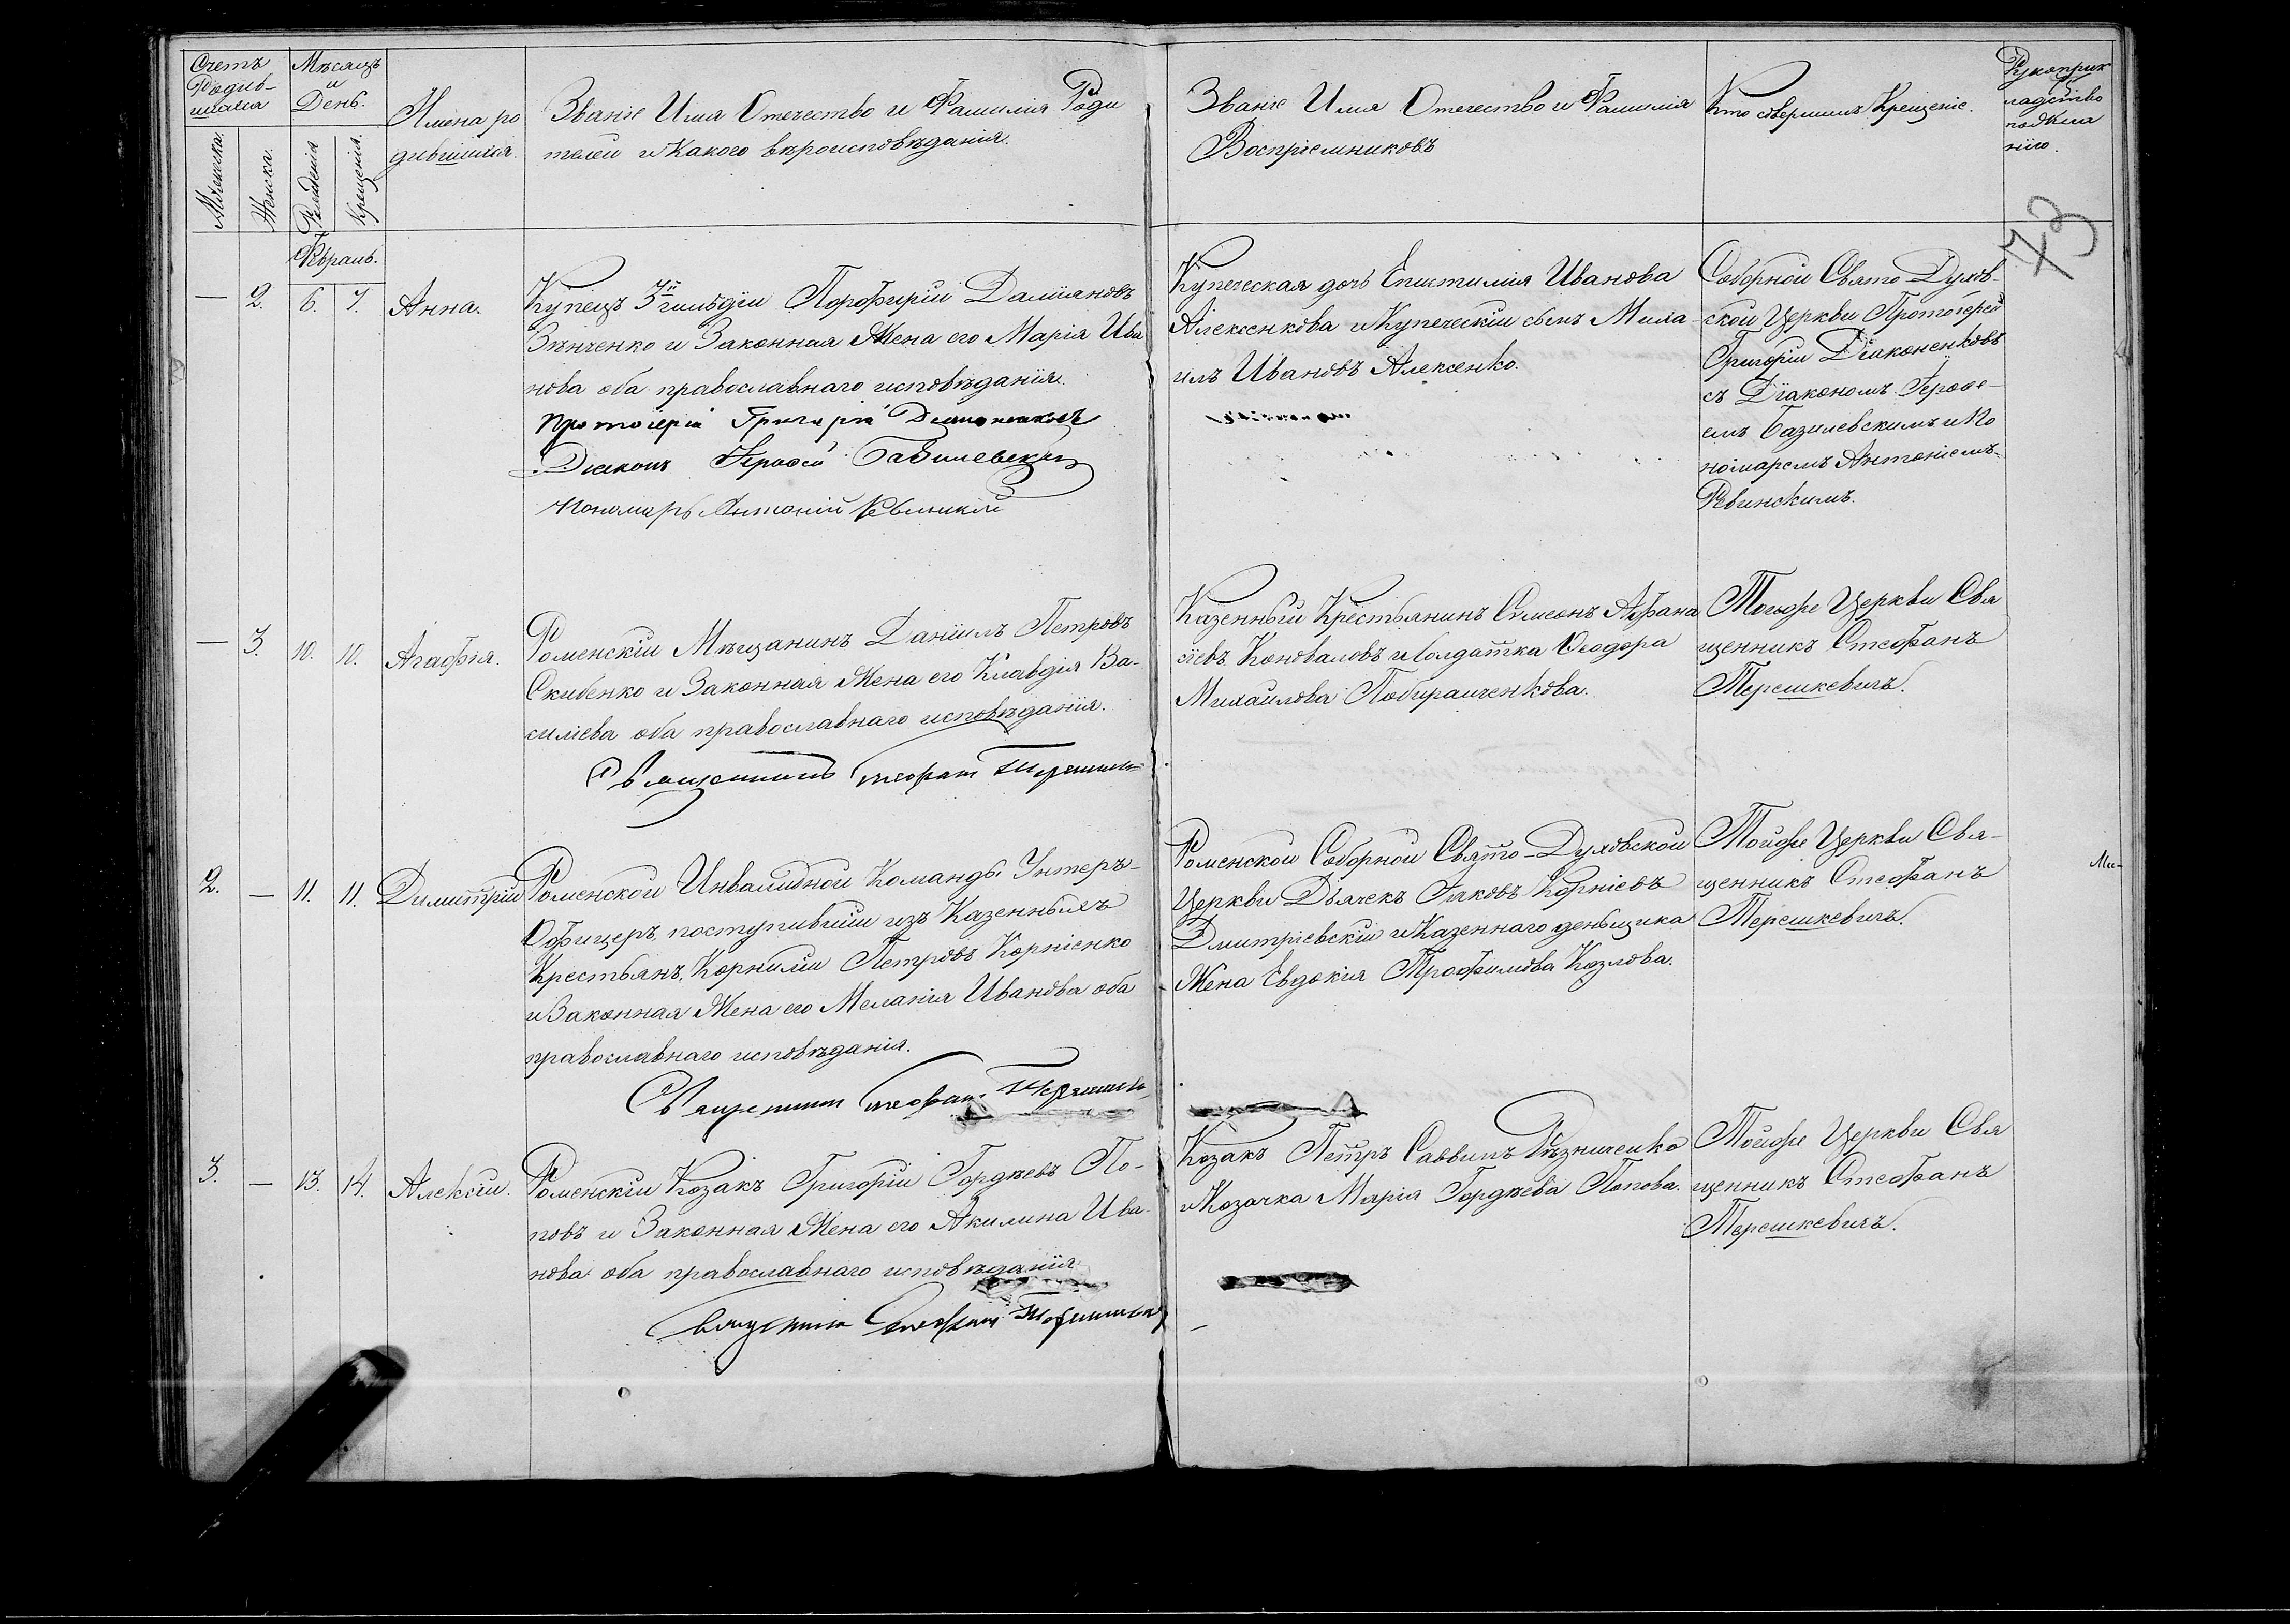 Счетъ
Родив-
шихся
Мѣсяцъ
и
День.
Мужеска.
Женска.
Рожденія
Крещенія.
Имена ро
дившихся.
Званіе Имя Отечество и Фамилія Роди
телей и Какого вѣроисповѣданія.
Званіе Имя Отечество и Фамилія
Воспріемниковъ
Кто совершилъ Крещеніе.
Рукоприк
ладство
73
Февраль.
— 2. 6. 7. Анна.
Купецъ 3й гильдіи Порфирій Даміяновъ
Зѣнченко и Законная Жена его Марія Ива
нова оба православнаго исповѣданія.
Протоіерей Григорій Діаконенковъ
Діаконъ Іерофей Базилевскій
Пономарь Антоній Ревинскій
Купеческая дочь Епистимія Иванова
Алексенкова и Купеческій сынъ Миха-
илъ Ивановъ Алексенко.
Соборной Свято Духов-
ской Церкви Протоіерей
Григорій Діаконенковъ
съ Діакономъ Іерофе-
емъ Базилевскимъ и По
номаремъ Антоніемъ
Ревинскимъ.
— 3. 10. 10. Агафія.
Роменскій Мѣщанинъ Даніилъ Петровъ
Скибенко и Законная Жена его Клавдія Ва-
силіева оба православнаго исповѣданія.
Священникъ Стефанъ Терешкевичъ
Казенный Крестьянинъ Симеонъ Афана
сіевъ Коноваловъ и Солдатка Феодора
Михайлова Побиранченкова.
Тойже Церкви Свя
щенникъ Стефанъ
Терешкевичъ.
2. — 11. 11. Димитрій
Роменской Инвалидной Команды Унтеръ-
Офицеръ, поступившій изъ Казенныхъ
Крестьянъ, Корнилій Петровъ Корніенко
и Законная Жена его Меланія Иванова оба
православнаго исповѣданія.
Священникъ Стефанъ Терешкевичъ
Роменской Соборной Свято-Духовской
Церкви Дьячекъ Іаковъ Корніевъ
Дмитріевскій и Казеннаго деньщика
Жена Евдокія Трофимова Козлова.
Тойже Церкви Свя-
щенникъ Стефанъ
Терешкевичъ.
Ми-
3. — 13. 14. Алексій.
Роменскій Козакъ Григорій Гордѣевъ По-
повъ и Законная Жена его Акилина Ива-
нова оба православнаго исповѣданія
Священникъ Стефанъ Терешкевичъ
Козакъ Петръ Саввинъ Рѣзниченко
и Козачка Марія Гордѣева Попова.
Тойже Церкви Свя
щенникъ Стефанъ
Терешкевичъ.